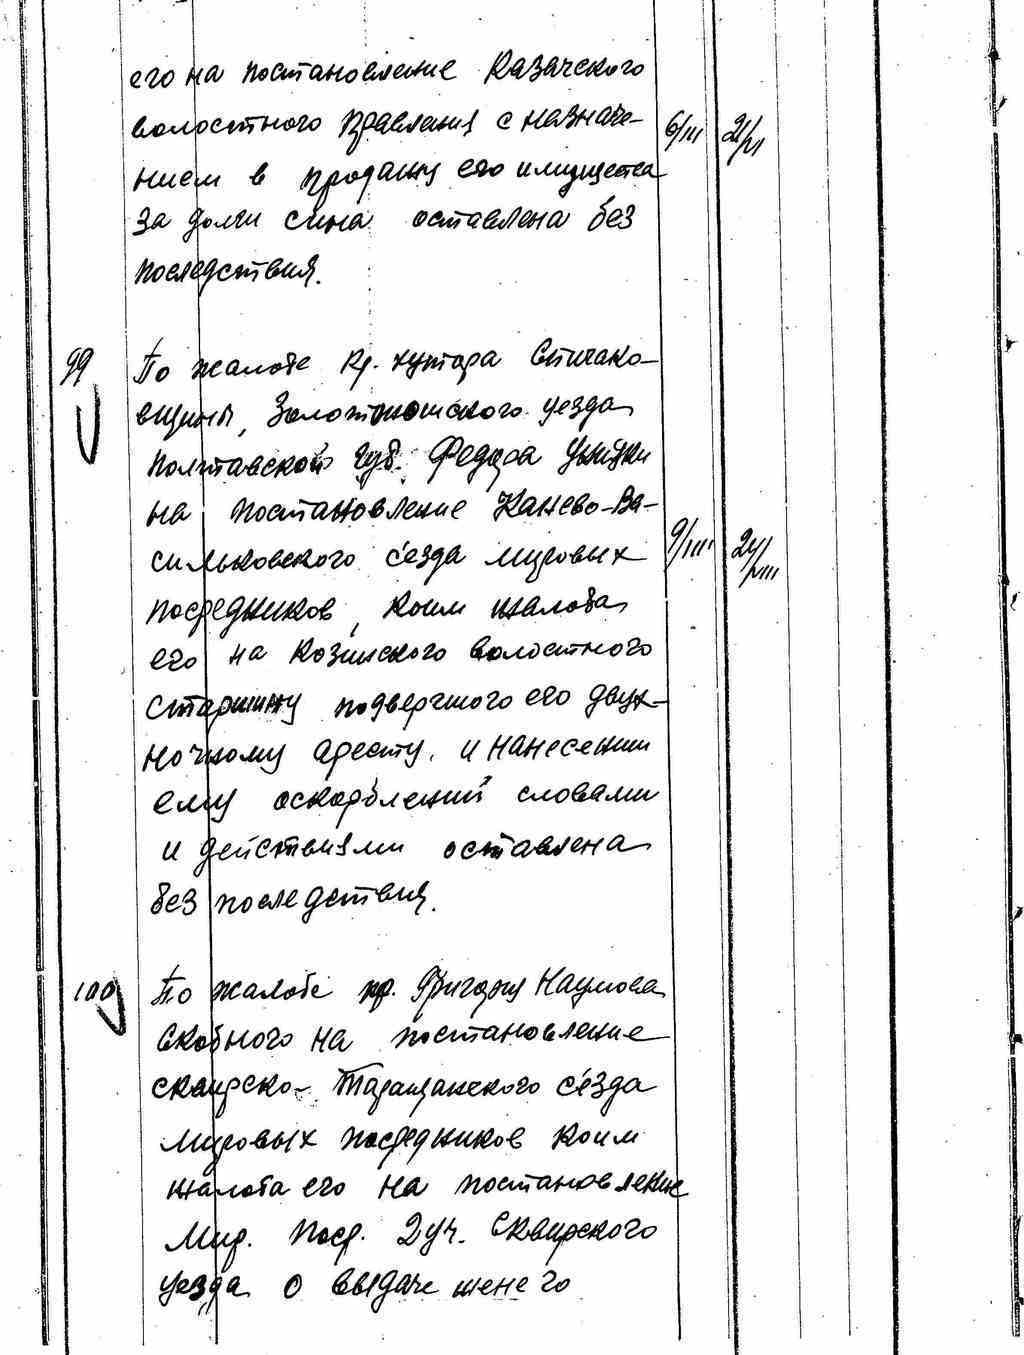 его на постановление Казачского
волостного правления с назначе-
нием в продажу его имущества
за долги сына оставлена без
последствия.
6/III 21/VI
99 По жалобе кр. хутора Спичако-
вщины, Золотоношского уезда
Полтавской губ. Федора
на постановление Канево-Ва-
сильковского с'езда мировых
посредников, коим жалоба
его на Козинского волостного
старшину подвергшого его двух-
ночному аресту. и нанесении
ему оскорблений словами
и действиями оставлена
без последствия.
9/III 24/VIII
100 По жалобе кр. Григория Наумова
Скобного на постановление
Сквирско-Таращанского с'езда
мировых посредников коим
жалоба его на постановление
Мир. Поср. 2 уч. Сквирского
уезда о выдаче жене го